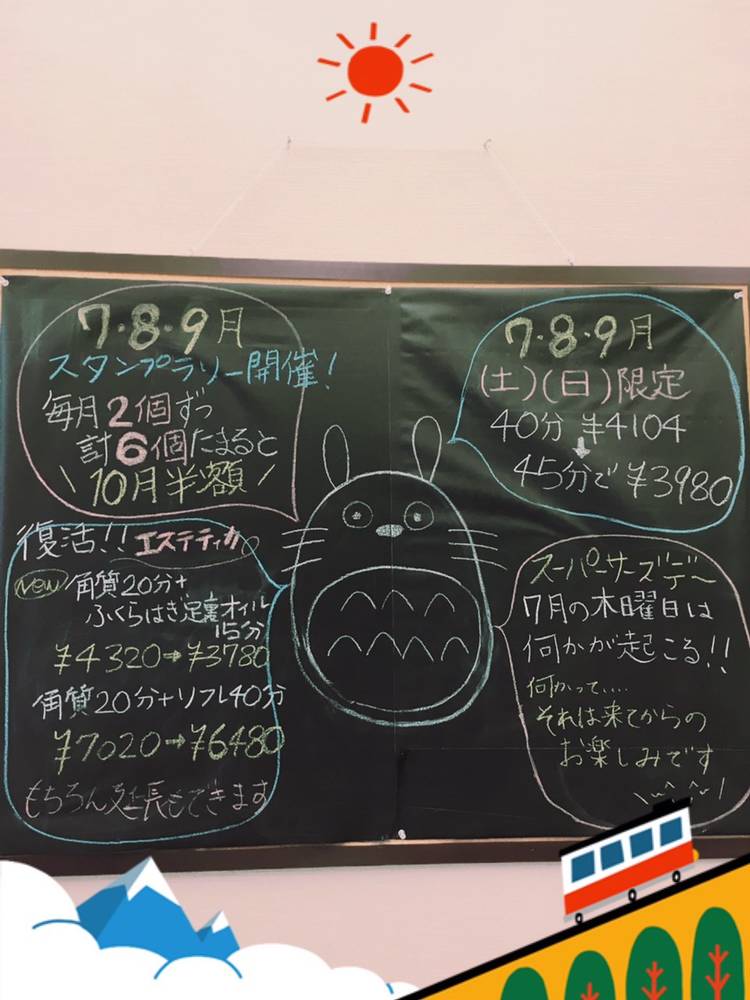 7・8・9月
スタンプラリー開催!
毎月2個ずつ
計6個たまると
\10月半額/
復活!! エステティカ
New 角質20分+
ふくらはぎ足裏オイル
15分
¥4320→¥3780
角質20分+リフレ40分
¥7020→¥6480
もちろん延長もできます
7・8・9月
(土)(日)限定
40分 ¥4104
↓
45分で ¥3980
スーパーサーズデー
7月の木曜日は
何かが起こる!!
何かって....
それは来てからの
お楽しみです